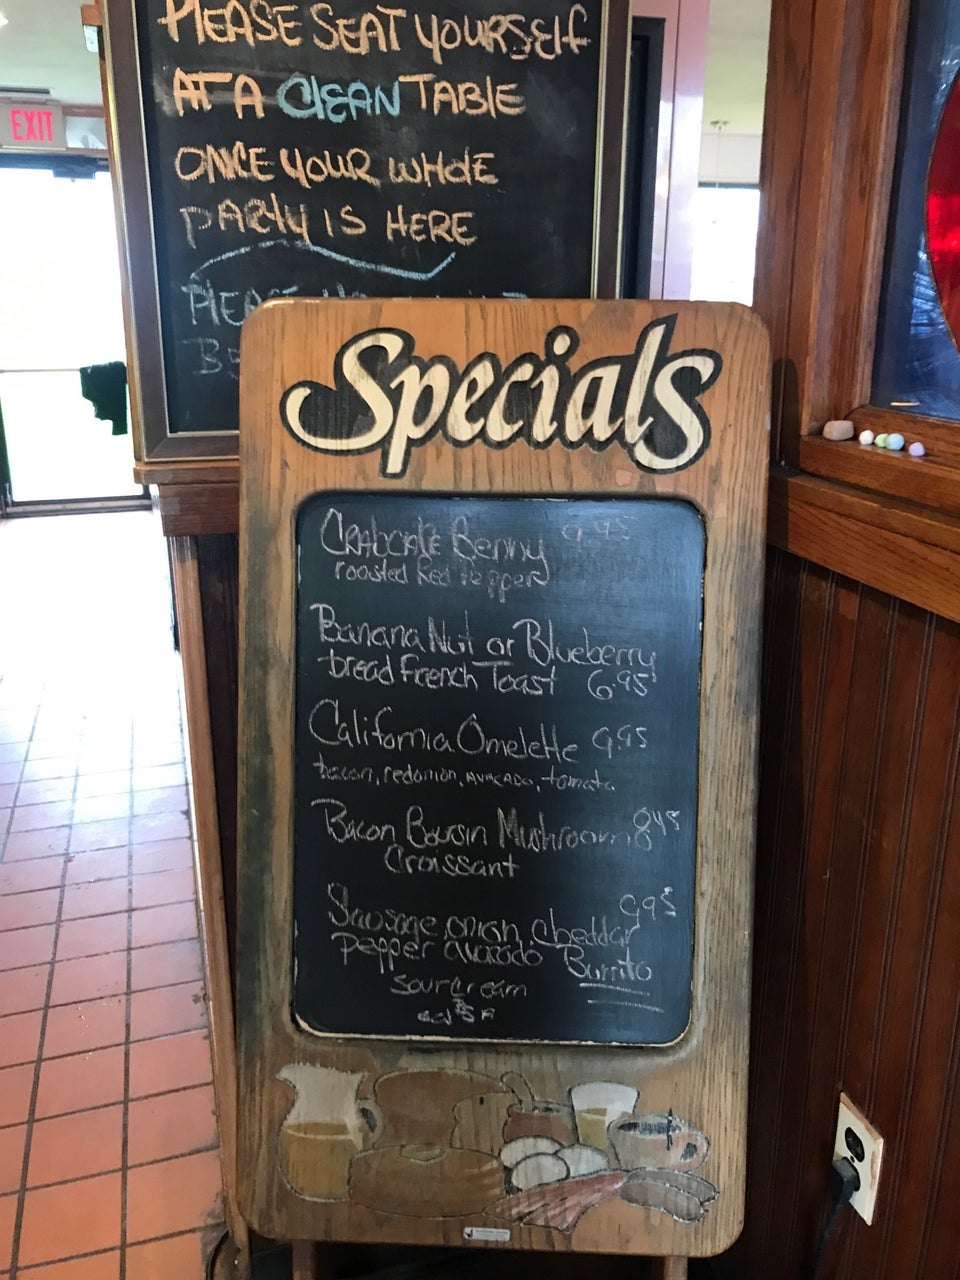 PLEASE SEAT YOURSELF
AT A CLEAN TABLE
ONCE YOUR WHOLE
PARTY IS HERE
EXIT
Specials
CRABCAKE Benny 9.95
roasted Red Pepper
Banana Nut or Blueberry
bread French Toast 6.95
California Omelette 9.95
bacon, red onion, AVACADO, tomato
Bacon Boursin Mushroom 8.45
Croissant
9.95
Sausage, onion, cheddar
pepper avacado Burrito
sour cream